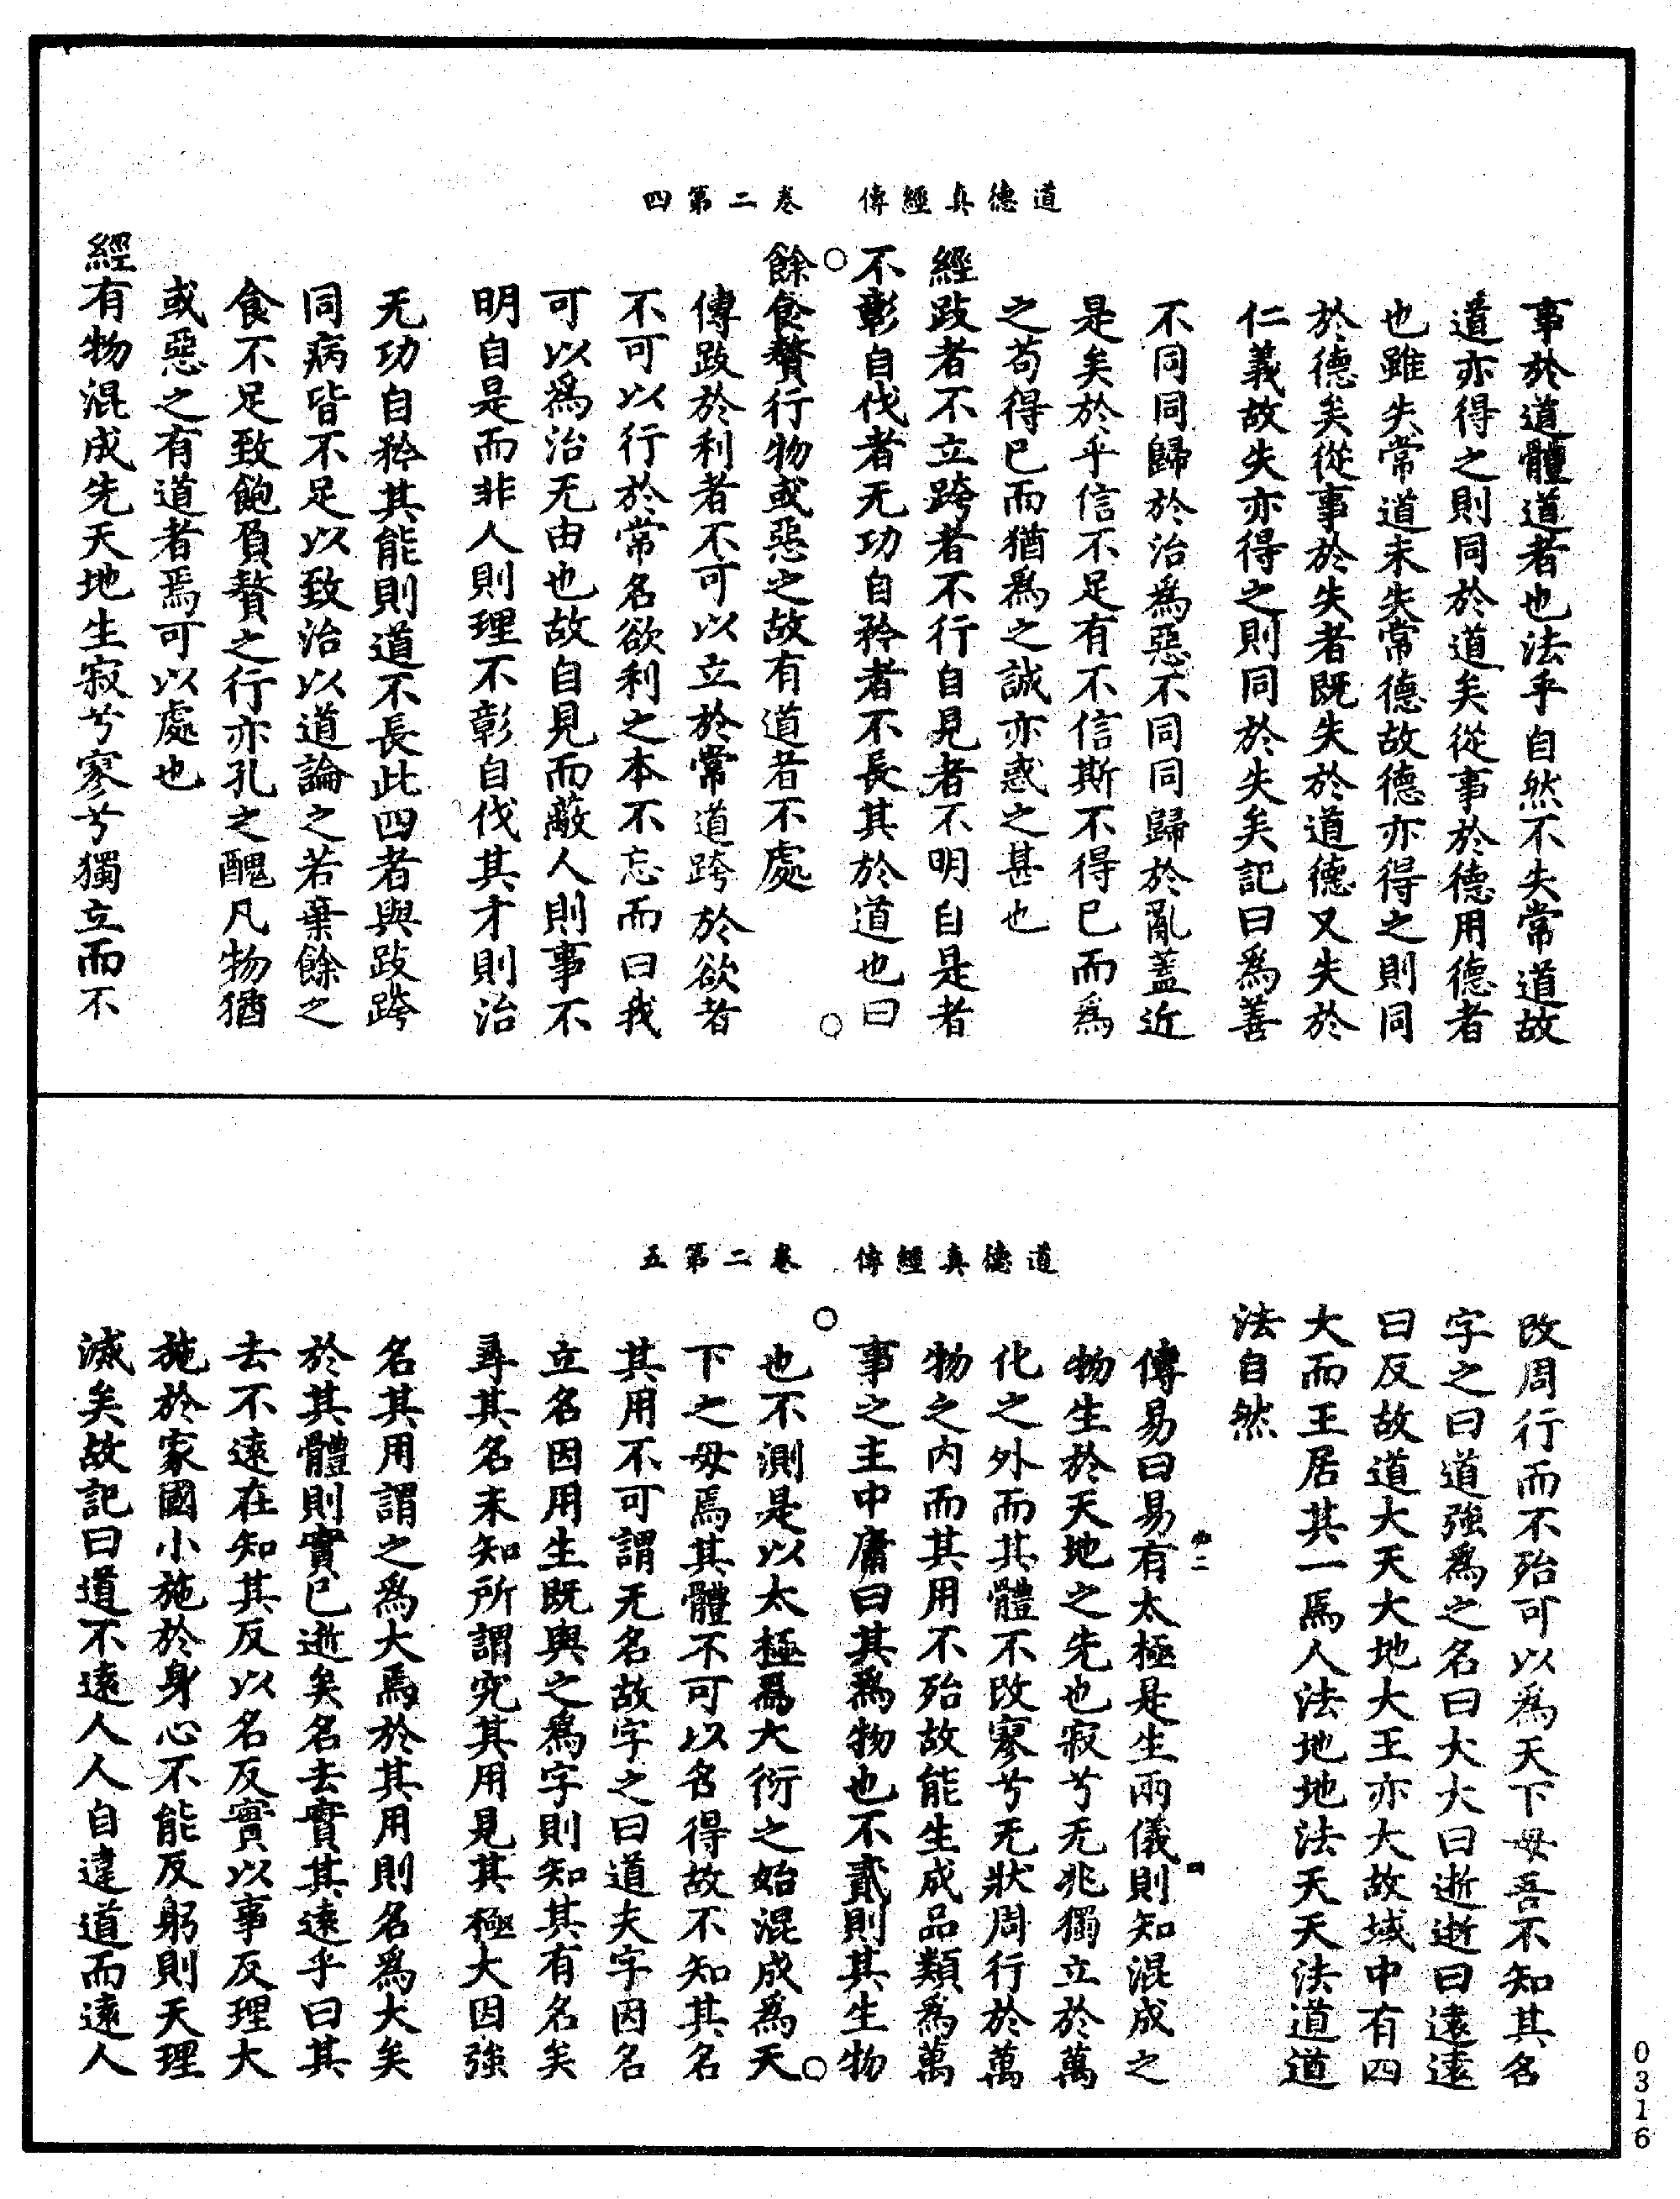 道德真經傳　卷二第四
事於道體道者也法乎自然不失常道故
道亦得之則同於道矣從事於德用德者
也雖失常道未失常德故德亦得之則同
於德矣從事於失者既失於道德又失於
仁義故失亦得之則同於失矣記曰為善
不同同歸於治為惡不同同歸於亂蓋近
是矣於乎信不足有不信斯不得已而為
之苟得已而猶為之誠亦惑之甚也
經跂者不立跨者不行自見者不明自是者
不彰自伐者无功自矜者不長其於道也曰
餘食贅行物或惡之故有道者不處
傳跂於利者不可以立於常道跨於欲者
不可以行於常名欲利之本不忘而曰我
可以為治无由也故自見而蔽人則事不
明自是而非人則理不彰自伐其才則治
无功自矜其能則道不長此四者與跂跨
同病皆不足以致治以道論之若棄餘之
食不足致飽負贅之行亦孔之醜凡物猶
或惡之有道者焉可以處也
經有物混成先天地生寂兮寥兮獨立而不
道德真經傳　卷二第五
改周行而不殆可以為天下母吾不知其名
字之曰道強為之名曰大大曰逝逝曰遠遠
曰反故道大天大地大王亦大故域中有四
大而王居其一焉人法地地法天天法道道
法自然
傳易曰易有太極是生兩儀則知混成之
物生於天地之先也寂兮无兆獨立於萬
化之外而其體不改寥兮无狀周行於萬
物之內而其用不殆故能生成品類為萬
事之主中庸曰其為物也不貳則其生物
也不測是以太極為大衍之始混成為天
下之母焉其體不可以名得故不知其名
其用不可謂无名故字之曰道夫字因名
立名因用生既與之為字則知其有名矣
尋其名未知所謂究其用見其極大因強
名其用謂之為大焉於其用則名為大矣
於其體則實已逝矣名去實其遠乎曰其
去不遠在知其反以名反實以事反理大
施於家國小施於身心不能反躬則天理
滅矣故記曰道不遠人人自違道而遠人
0316